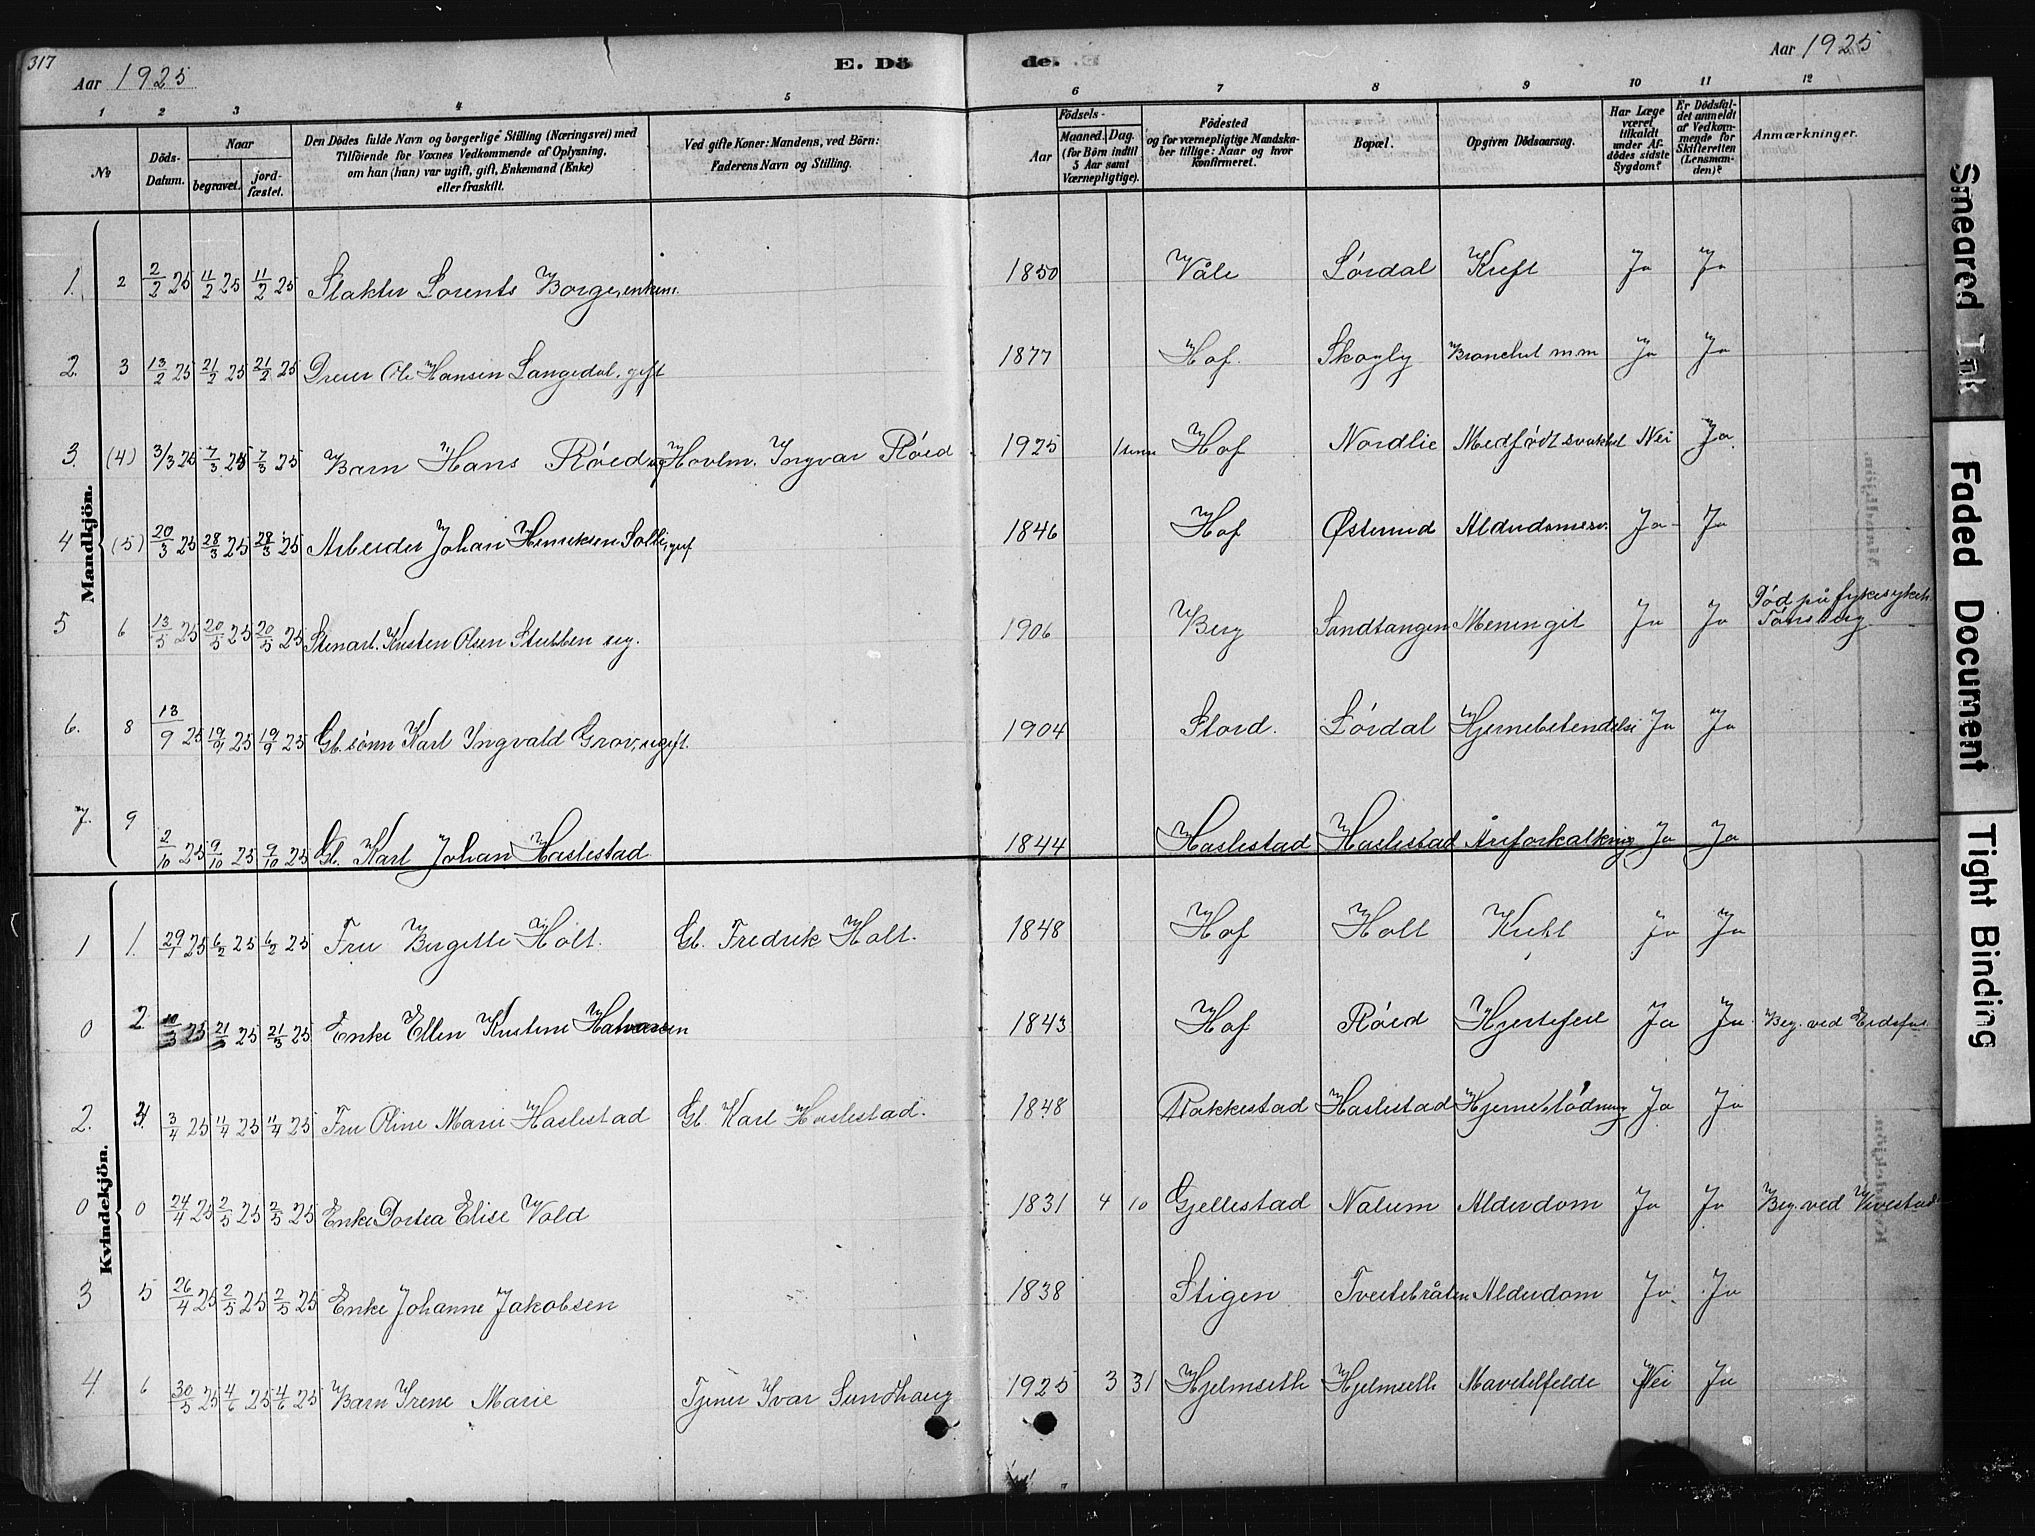 317
Aar 1925
E. Dö
de.
Aar 1925
1 2 3 4 5 6 7 8 9 10 11 12
No
Döds-Datum.
Naar
begravet.
jord-fæstet.
Den Dödes fulde Navn og borgerlige Stilling (Næringsvei) med
Tilföiende for Voxnes Vedkommende af Oplysning,
om han (hun) var ugift, gift, Enkemand (Enke)
eller fraskilt.
Ved gifte Koner: Mandens, ved Börn:
Faderens Navn og Stilling.
Födsels-
Aar
Maaned. Dag.
(for Börn indtil
5 Aar samt
Værnepligtige).
Födested
og for værnepligtige Mandska-
ber tillige: Naar og hvor
konfirmeret.
Bopæl.
Opgiven Dödsaarsag.
Har Læge
været
tilkaldt
under Af-
dödes sidste
Sygdom?
Er Dödsfal-
det anmeldt
af Vedkom-
mende for
Skifteretten
(Lensman-
den)?
Anmærkninger.
Mandkjön.
1. 2 2/2 25 11/2 25 11/2 25 Slakter Lorents Borge, enkem. 1850 Våle Lørdal Kreft Ja Ja
2. 3 13/2 25 21/2 25 21/2 25 Dreier Ole Hansen Langedal, gift 1877 Hof. Skogly Bronchit m.m Ja Ja
3. (4) 3/3 25 7/3 25 7/3 25 Barn Hans Røed ug Hovlm. Ingvar Røed 1925 1 time Hof Nordlie Medfødt svakhet Nei Ja
4 (5) 20/3 25 28/3 25 28/3 25 Arbeider Johan Henriksen Solli, gif 1846 Hof Østerud Alderdomssv. Ja Ja
5 6 13/5 25 20/5 25 20/5 25 Stenarb. Kristen Olsen Stubben ug. 1906 Berg Sandtangen Meningit Ja Ja Død på fylkesykeh. Tønsberg
6. 8 13/9 25 19/9 25 19/9 25 Gb. sønn Karl Ingvald Grov, ugift. 1904 Stord. Lørdal Hjernebetendelse Ja Ja
7. 9 2/10 25 9/10 25 9/10 25 Gb. Karl Johan Haslestad 1844 Haslestad Haslestad Åreforkalkning Ja Ja
Kvindekjön.
1 1. 29/1 25 6/2 25 6/2 25 Fru Birgitte Holt. Gb. Fredrik Holt. 1848 Hof Holt Kreft Ja Ja
0 2 10/3 25 21/3 25 21/3 25 Enke Ellen Kristine Halvorsen 1843 Hof Røed Hjertefeil Ja Ja Beg. ved Eidsfos
2. 3/4 25 11/4 25 11/4 25 Fru Oline Marie Haslestad Gb. Karl Haslestad. 1848 Rakkestad Haslestad Hjerneblødning Ja Ja
0 0 24/4 25 2/5 25 2/5 25 Enke Dortea Elise Vold 1831 4 10 Gjellestad Nalum Alderdom Ja Ja Beg. ved Vivestad
3 5 26/4 25 2/5 25 2/5 25 Enke Johanne Jakobsen 1838 Stigen Tveitebråten Alderdom Ja Ja
4 6 30/5 25 4/6 25 4/6 25 Barn Irene Marie Tjener Ivar Sundhaug 1925 3 31 Hjelmseth Hjelmseth Mavetilfelde Nei Ja
Smeared Ink
Faded Document
Tight Binding